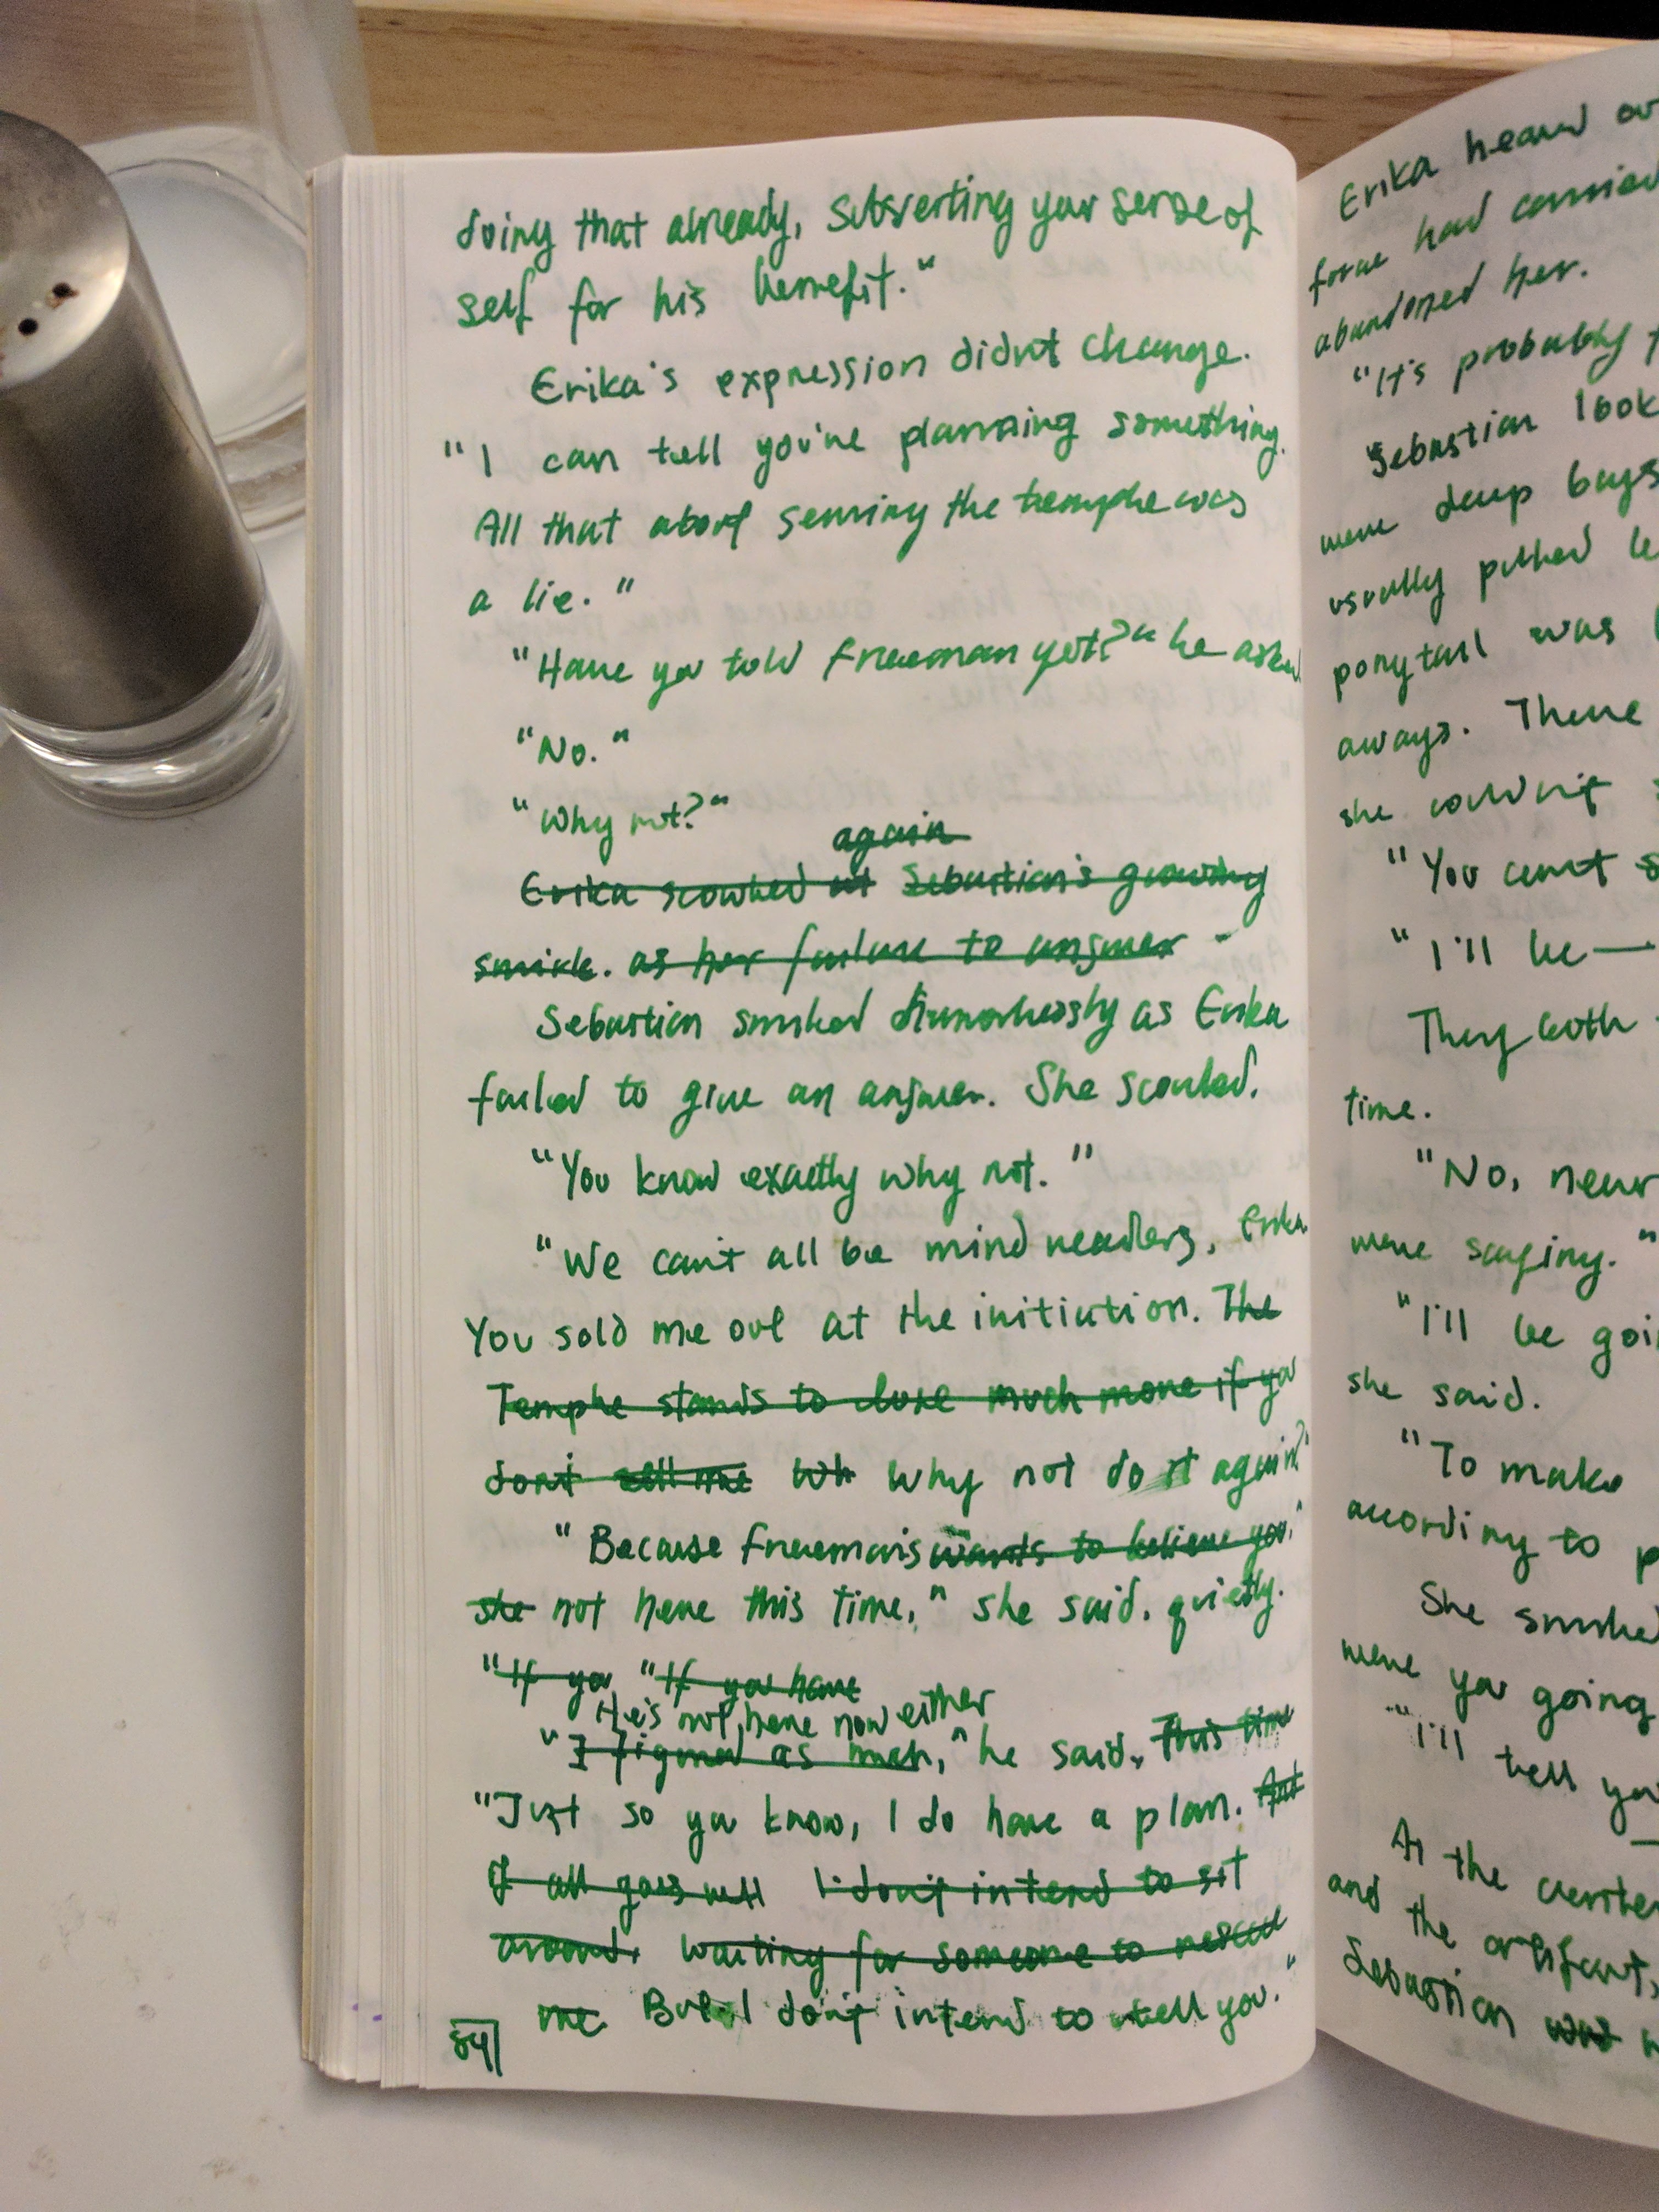 doing that already, subverting your sense of
self for his benefit."
Erika's expression didn't change.
"I can tell you're planning something.
All that about serving the temple was
a lie."
"Have you told Freeman yet?" he asked
"No."
"Why not?"
again
Erika scowled at Sebastian's growing
smirk. as her failure to answer
Sebastian smirked humorlessly as Erika
failed to give an answer. She scowled.
"You know exactly why not."
"We can't all be mind readers, Erika.
You sold me out at the initiation. The
Temple stands to lose much more if you
don't sell me Wh why not do it again?"
"Because Freeman's wants to believe you."
she not here this time," she said. quietly.
"If you "If you have
He's not here now either
"I figured as much," he said. This time
"Just so you know, I do have a plan. And
if all goes well I don't intend to sit
around. waiting for someone to rescue
me But I don't intend to tell you."
84
Erika heard
force had carried
abandoned her.
"It's probably
Sebastian look
were deep bags
usually pulled
ponytail was
aways. There
she couldn't
"You can't
"I'll be—
They both
time.
"No, never
were saying."
"I'll be goi
she said.
"To make
according to p
She smirked
were you going
"I'll tell you
At the center
and the artifact,
Sebastian was